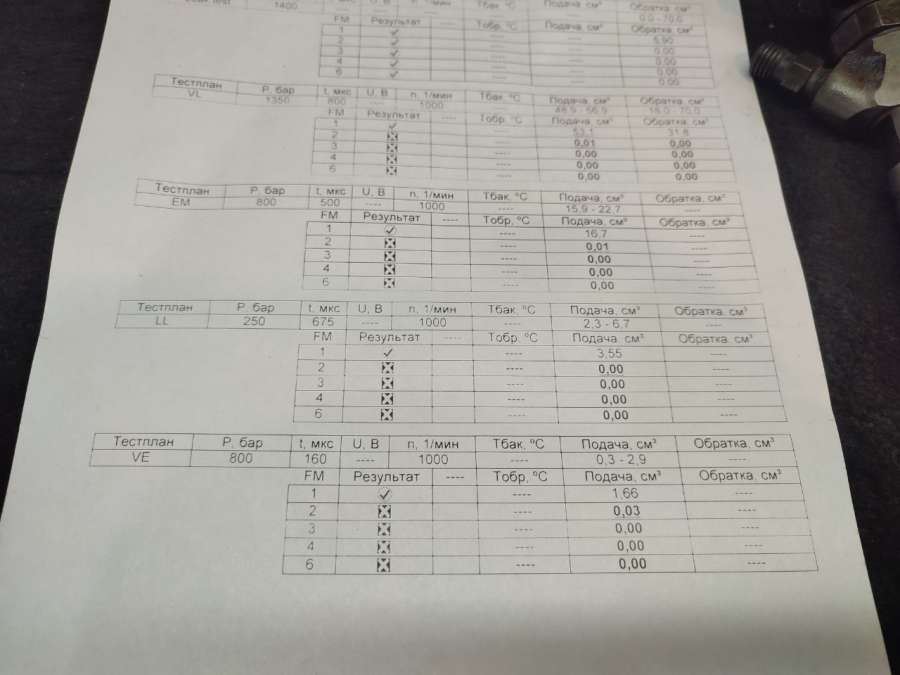 1400 ---- Тбак °C Подача, см³ Обратка, см³
0,0 - 70,0
FM Результат ---- Тобр, °C Подача, см³ Обратка, см³
1 ✓ ---- ----
2 ✓ ---- ---- 0,00
3 ✓ ---- ---- 0,00
4 ✓ ---- ---- 0,00
6 ✓ ---- ---- 0,00
Тестплан P, бар t, мкс U, В n, 1/мин Тбак, °C Подача, см³ Обратка, см³
VL 1350 800 ---- 1000 ---- 48,9 - 56,9 15,0 - 70,0
FM Результат ---- Тобр, °C Подача, см³ Обратка, см³
1 ✓ ---- 53,1 31,8
2 ---- 0,01 0,00
3 ---- 0,00 0,00
4 ---- 0,00 0,00
6 ---- 0,00 0,00
Тестплан P, бар t, мкс U, В n, 1/мин Тбак, °C Подача, см³ Обратка, см³
EM 800 500 ---- 1000 ---- 15,9 - 22,7 ----
FM Результат ---- Тобр, °C Подача, см³ Обратка, см³
1 ✓ ---- 16,7 ----
2 ---- 0,01 ----
3 ---- 0,00 ----
4 ---- 0,00 ----
6 ---- 0,00 ----
Тестплан P, бар t, мкс U, В n, 1/мин Тбак, °C Подача, см³ Обратка, см³
LL 250 675 ---- 1000 ---- 2,3 - 6,7 ----
FM Результат ---- Тобр, °C Подача, см³ Обратка, см³
1 ✓ ---- 3,55 ----
2 ---- 0,00 ----
3 ---- 0,00 ----
4 ---- 0,00 ----
6 ---- 0,00 ----
Тестплан P, бар t, мкс U, В n, 1/мин Тбак, °C Подача, см³ Обратка, см³
VE 800 160 ---- 1000 ---- 0,3 - 2,9 ----
FM Результат ---- Тобр, °C Подача, см³ Обратка, см³
1 ✓ ---- 1,66 ----
2 ---- 0,03 ----
3 ---- 0,00 ----
4 ---- 0,00 ----
6 ---- 0,00 ----